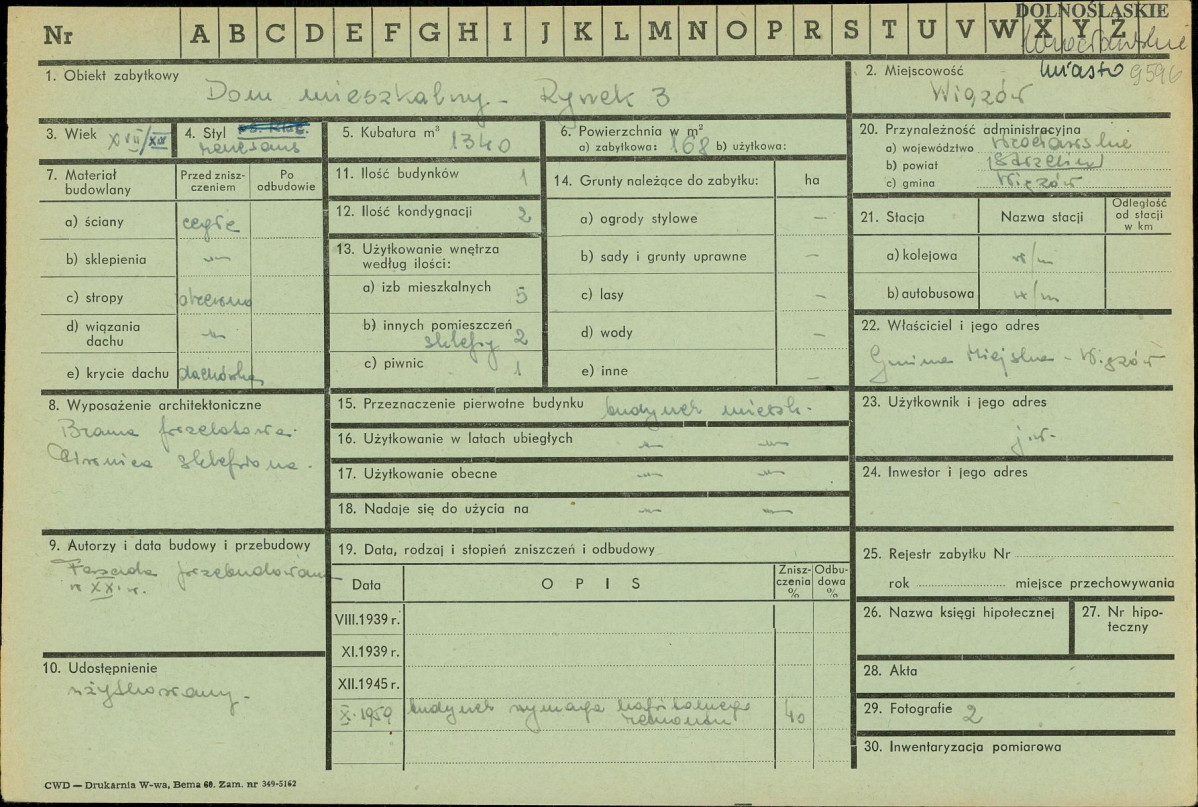 Nr A B C D E F G H I J K L M N O P R S T U V W X Y Z
DOLNOŚLĄSKIE
miasto 9596
1. Obiekt zabytkowy
Dom mieszkalny - Rynek 3
2. Miejscowość
Wiązów
3. Wiek XVII/XIX
4. Styl
renesans
5. Kubatura m³
1340
6. Powierzchnia w m²
a) zabytkowa: 168 b) użytkowa:
20. Przynależność administracyjna
a) województwo wrocławskie
b) powiat (Strzelin)
c) gmina Wiązów
7. Materiał budowlany
Przed znisz-
czeniem
Po
odbudowie
a) ściany cegła
b) sklepienia —"—
c) stropy otczesna
d) wiązania
dachu —"—
e) krycie dachu dachówka
11. Ilość budynków 1
12. Ilość kondygnacji 2
13. Użytkowanie wnętrza
według ilości:
a) izb mieszkalnych 5
b) innych pomieszczeń
sklepy 2
c) piwnic 1
14. Grunty należące do zabytku: ha
a) ogrody stylowe —
b) sady i grunty uprawne —
c) lasy —
d) wody —
e) inne —
21. Stacja Nazwa stacji
Odległość
od stacji
w km
a) kolejowa w/m
b) autobusowa w/m
22. Właściciel i jego adres
Gmina Miejska - Wiązów
8. Wyposażenie architektoniczne
Brama przelotowa.
sklepiona.
15. Przeznaczenie pierwotne budynku budynek mieszk.
16. Użytkowanie w latach ubiegłych —"— —"—
17. Użytkowanie obecne —"— —"—
18. Nadaje się do użycia na —"— —"—
23. Użytkownik i jego adres
j.w.
24. Inwestor i jego adres
9. Autorzy i data budowy i przebudowy
Fasada przebudowana
w XX. w.
19. Data, rodzaj i stopień zniszczeń i odbudowy
Data OPIS
Znisz-
czenia
%
Odbu-
dowa
%
VIII.1939 r.
XI.1939 r.
XII.1945 r.
X.1959 budynek wymaga kapitalnego
remontu 40
25. Rejestr zabytku Nr
rok miejsce przechowywania
26. Nazwa księgi hipotecznej
27. Nr hipo-
teczny
10. Udostępnienie
użytkowany.
28. Akta
29. Fotografie 2
30. Inwentaryzacja pomiarowa
CWD — Drukarnia W-wa, Bema 60. Zam. nr 349-5162